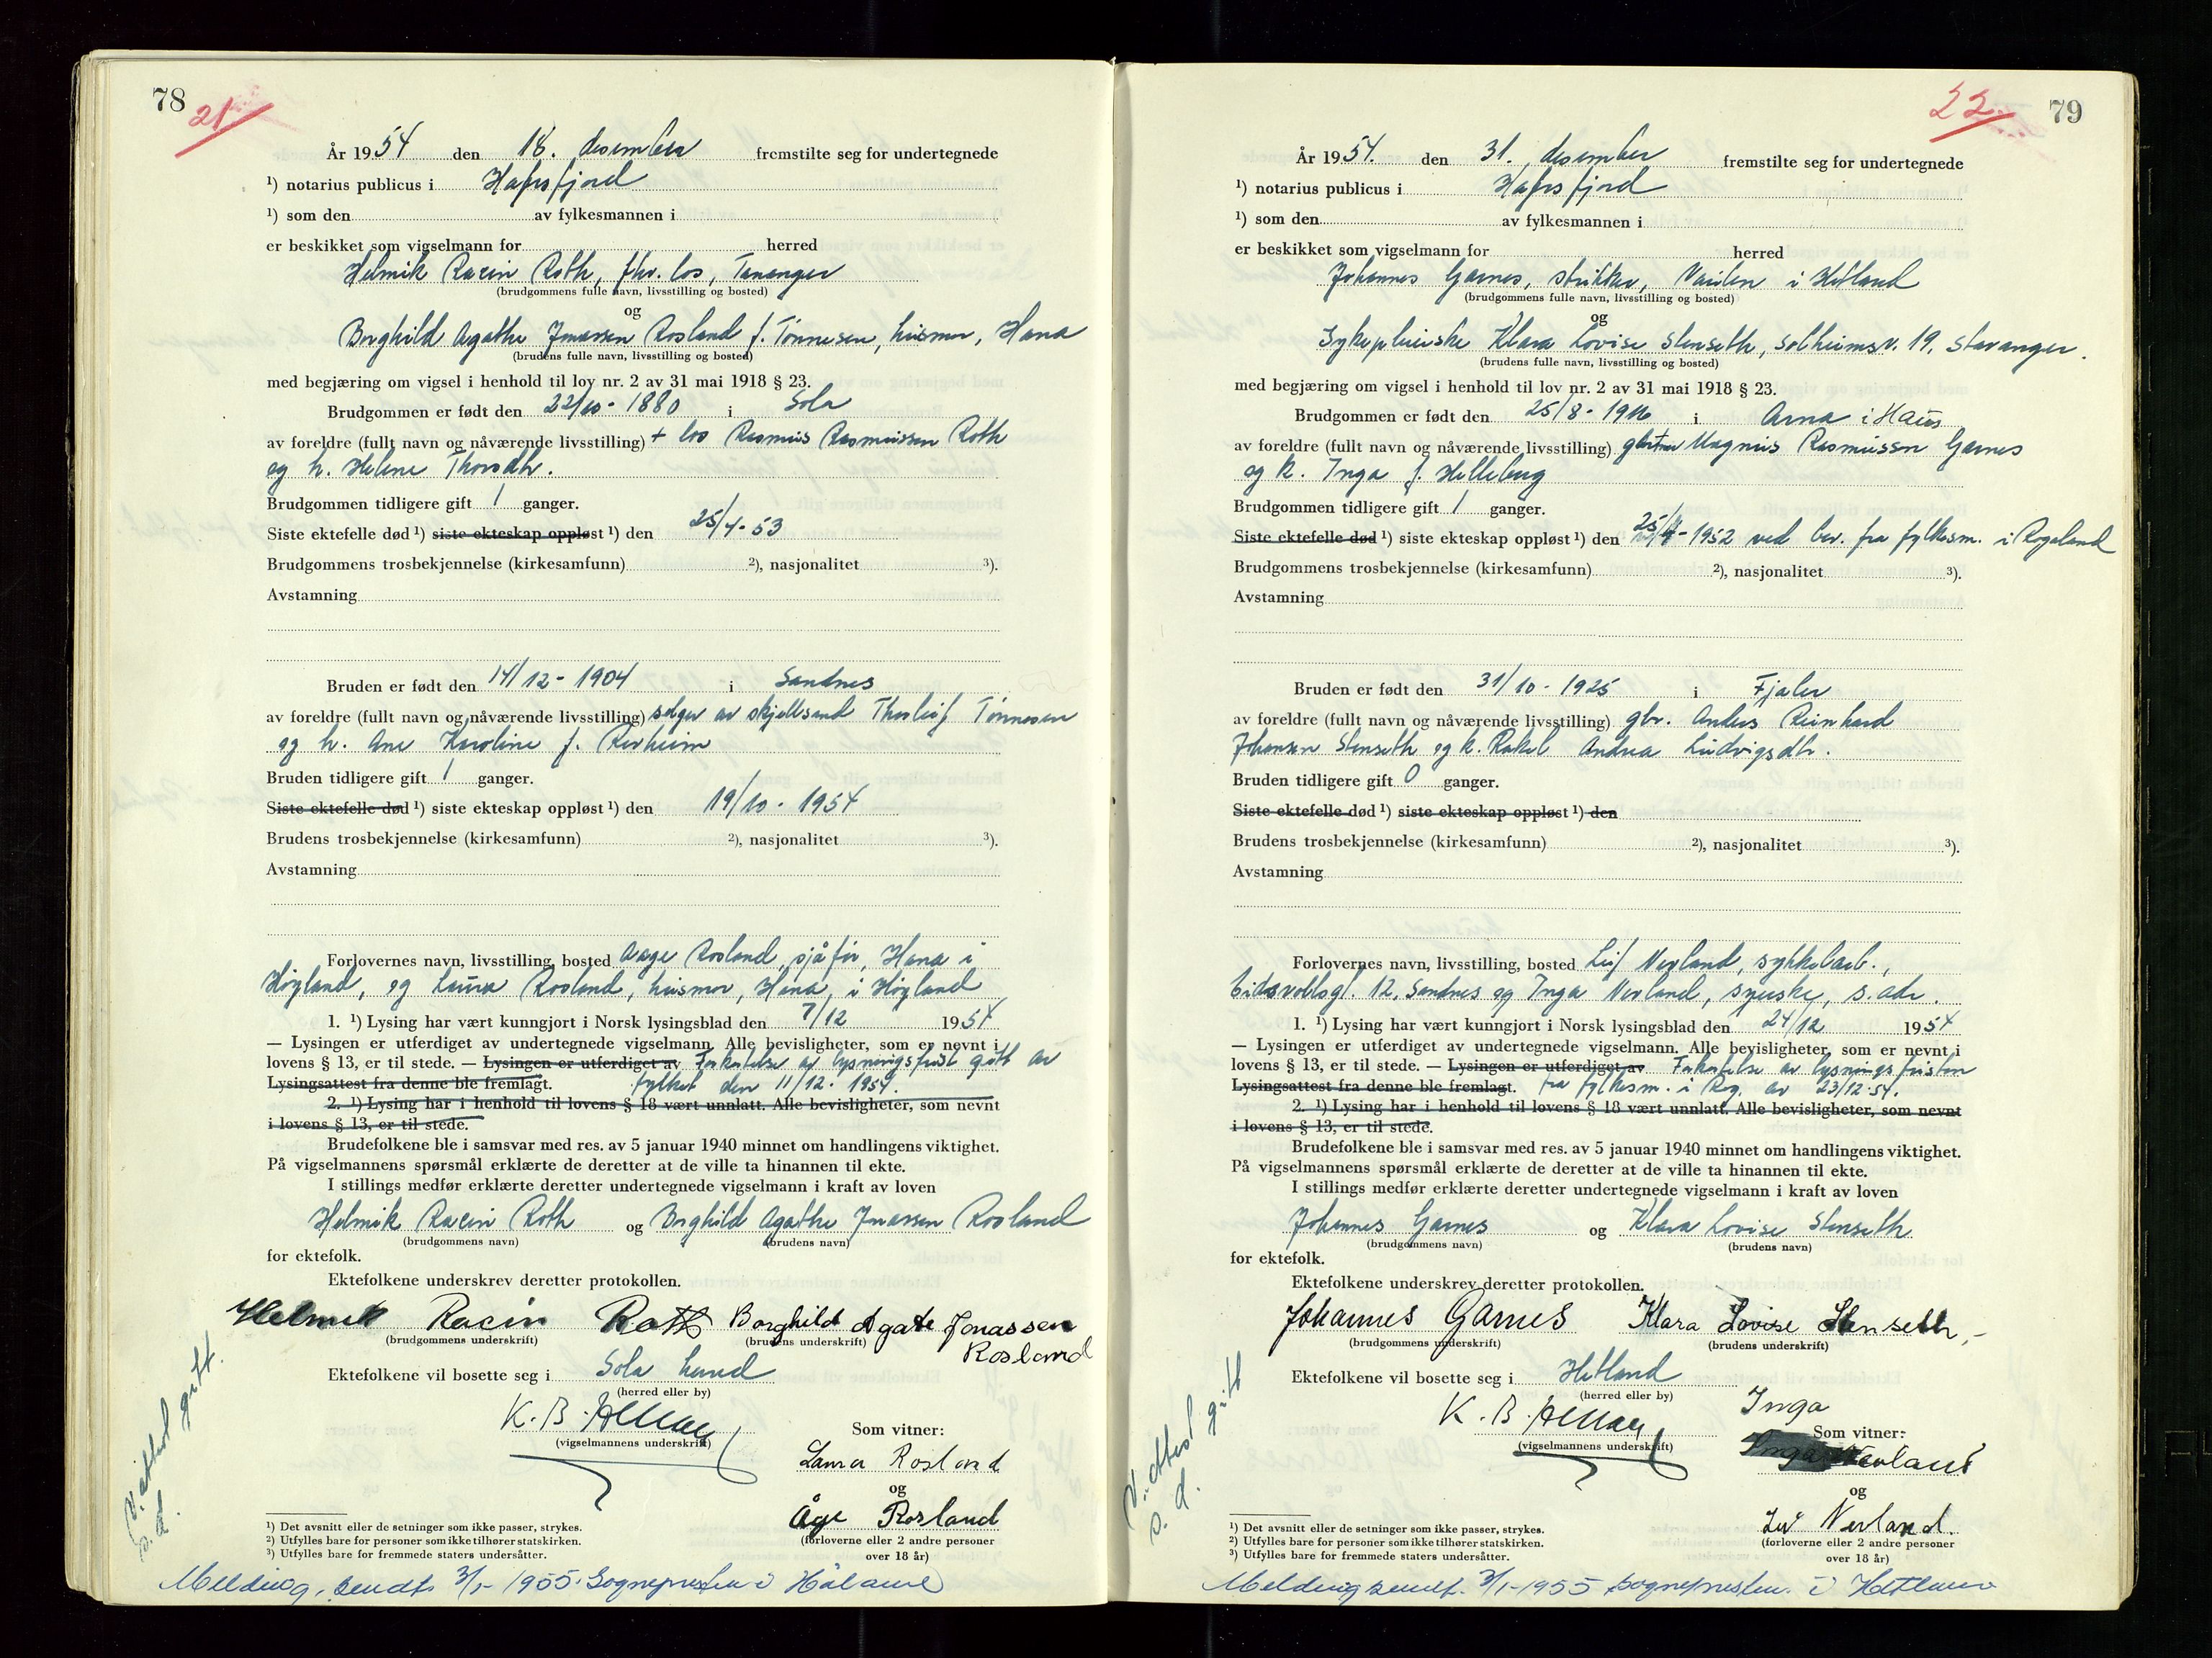 78
21
År 1954 den 18. desember fremstilte seg for undertegnede
¹) notarius publicus i Hafrsfjord
¹) som den av fylkesmannen i
er beskikket som vigselmann for herred
Helmik Racin Roth, fhv. los, Tananger
(brudgommens fulle navn, livsstilling og bosted)
og
Borghild Agathe Jonassen Rosland f. Tønnesen, husmor, Hana
(brudens fulle navn, livsstilling og bosted)
med begjæring om vigsel i henhold til lov nr. 2 av 31 mai 1918 § 23.
Brudgommen er født den 22/10 - 1880 i Sola
av foreldre (fullt navn og nåværende livsstilling) + los Rasmus Rasmussen Roth
og h. Helene Thorsdtr.
Brudgommen tidligere gift 1 ganger.
Siste ektefelle død ¹) siste ekteskap oppløst ¹) den 25/4-53
Brudgommens trosbekjennelse (kirkesamfunn) ²), nasjonalitet ³).
Avstamning
Bruden er født den 14/12 - 1904 i Sandnes
av foreldre (fullt navn og nåværende livsstilling) selger av skjellsand Thorleif Tønnesen
og h. Ane Karoline f.
Bruden tidligere gift 1 ganger.
Siste ektefelle død ¹) siste ekteskap oppløst ¹) den 19/10 - 1954
Brudens trosbekjennelse (kirkesamfunn) ²), nasjonalitet ³).
Avstamning
Forlovernes navn, livsstilling, bosted Aage Rosland, sjåfør, Hana i
Høyland, og Laura Rosland, husmor, Hana, i Høyland
1. ¹) Lysing har vært kunngjort i Norsk lysingsblad den 7/12 1954
— Lysingen er utferdiget av undertegnede vigselmann. Alle bevisligheter, som er nevnt i
lovens § 13, er til stede. — Lysingen er utferdiget av Forkortelse av lysningsfrist gitt av
Lysingsattest fra denne ble fremlagt. fylket den 11/12. 1954.
2. ¹) Lysing har i henhold til lovens § 18 vært unnlatt. Alle bevisligheter, som nevnt
i lovens § 13, er til stede.
Brudefolkene ble i samsvar med res. av 5 januar 1940 minnet om handlingens viktighet.
På vigselmannens spørsmål erklærte de deretter at de ville ta hinannen til ekte.
I stillings medfør erklærte deretter undertegnede vigselmann i kraft av loven
Helmik Racin Roth og Borghild Agathe Jonassen Rosland
(brudgommens navn) (brudens navn)
for ektefolk.
Ektefolkene underskrev deretter protokollen.
Helmik Racin Roth Borghild Agate Jonassen
Rosland
(brudgommens underskrift) (brudens underskrift)
Ektefolkene vil bosette seg i Sola herred
(herred eller by)
K. B.
(vigselmannens underskrift)
Som vitner:
Laura Rosland
og
Åge Rosland
(forloverne eller 2 andre personer
over 18 år)
V.attest gitt
s. d.
¹) Det avsnitt eller de setninger som ikke passer, strykes.
²) Utfylles bare for personer som ikke tilhører statskirken.
³) Utfylles bare for fremmede staters undersåtter.
Melding sendt 3/1-1955. Sognepresten i Håland
22.
79
År 1954. den 31. desember fremstilte seg for undertegnede
¹) notarius publicus i Hafrsfjord
¹) som den av fylkesmannen i
er beskikket som vigselmann for herred
Johannes Garnes, strikker, Vaulen i Hetland
(brudgommens fulle navn, livsstilling og bosted)
og
Sykepleierske Klara Lovise Stenseth, Solheimsv. 19, Stavanger.
(brudens fulle navn, livsstilling og bosted)
med begjæring om vigsel i henhold til lov nr. 2 av 31 mai 1918 § 23.
Brudgommen er født den 25/8 - 1916 i Arna i Haus
av foreldre (fullt navn og nåværende livsstilling) Magnus Rasmussen Garnes
og k. Inga f. Helleberg
Brudgommen tidligere gift 1 ganger.
Siste ektefelle død ¹) siste ekteskap oppløst ¹) den 1952 ved bev. fra fylkesm. i Rogaland
Brudgommens trosbekjennelse (kirkesamfunn) ²), nasjonalitet ³).
Avstamning
Bruden er født den 31/10 - 1925 i Fjaler
av foreldre (fullt navn og nåværende livsstilling) gbr. Anders Reinhard
Johansen Stenseth og k. Rakel Andrea Ludvigsdtr.
Bruden tidligere gift 0 ganger.
Siste ektefelle død ¹) siste ekteskap oppløst ¹) den
Brudens trosbekjennelse (kirkesamfunn) ²), nasjonalitet ³).
Avstamning
Forlovernes navn, livsstilling, bosted Leif Nerland, sykkelarb.,
Eidsvollsgt. 12, Sandnes og Inga Nerland, syerske, s. adr.
1. ¹) Lysing har vært kunngjort i Norsk lysingsblad den 24/12 1954
— Lysingen er utferdiget av undertegnede vigselmann. Alle bevisligheter, som er nevnt i
lovens § 13, er til stede. — Lysingen er utferdiget av Forkortelse av lysningsfristen
Lysingsattest fra denne ble fremlagt. fra fylkesm. i Rog. av 23/12-54.
2. ¹) Lysing har i henhold til lovens § 18 vært unnlatt. Alle bevisligheter, som nevnt
i lovens § 13, er til stede.
Brudefolkene ble i samsvar med res. av 5 januar 1940 minnet om handlingens viktighet.
På vigselmannens spørsmål erklærte de deretter at de ville ta hinannen til ekte.
I stillings medfør erklærte deretter undertegnede vigselmann i kraft av loven
Johannes Garnes og Klara Lovise Stenseth
(brudgommens navn) (brudens navn)
for ektefolk.
Ektefolkene underskrev deretter protokollen.
Johannes Garnes Klara Lovise Stenseth
(brudgommens underskrift) (brudens underskrift)
Ektefolkene vil bosette seg i Hetland
(herred eller by)
K. B.
(vigselmannens underskrift)
Inga
Som vitner:
Inga Nerland
og
Leif Nerland.
(forloverne eller 2 andre personer
over 18 år)
V.attest gitt
s. d.
¹) Det avsnitt eller de setninger som ikke passer, strykes.
²) Utfylles bare for personer som ikke tilhører statskirken.
³) Utfylles bare for fremmede staters undersåtter.
Melding sendt. 3/1-1955 sognepresten. i Hetland